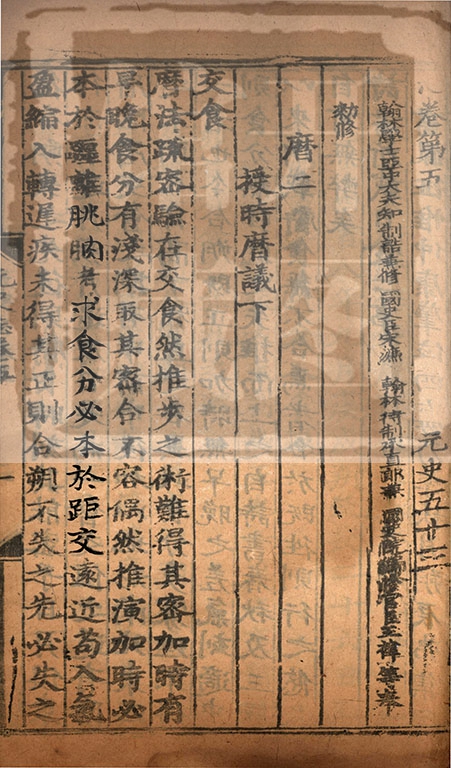 卷第五
元史五十三
翰林學士亞中大夫知制誥兼修國史臣宋濂 翰林待制承直郎兼國史院編脩官臣王禕等奉
勑修
曆二
授時曆議下
交食
曆法疏密驗在交食然推步之術難得其密加時有
早晚食分有淺深取其密合不容偶然推演加時必
本於躔離朓朒考求食分必本於距交遠近苟入氣
盈縮入轉遲疾未得其正則合朔不失之先必失之